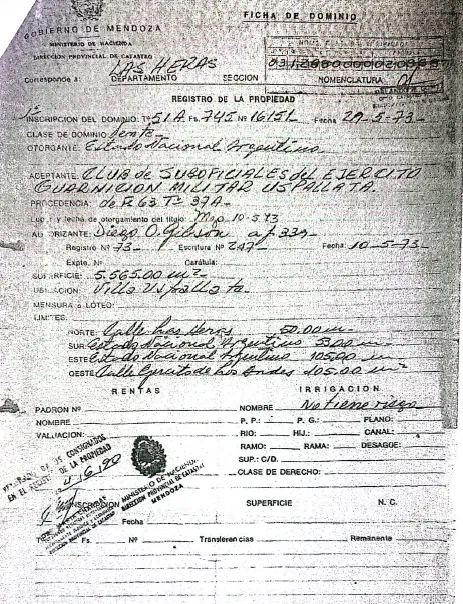 FICHA DE DOMINIO
GOBIERNO DE MENDOZA
MINISTERIO DE HACIENDA
DIRECCION PROVINCIAL DE CATASTRO
Corresponde a: LAS HERAS
DEPARTAMENTO SECCION NOMENCLATURA 01
REGISTRO DE LA PROPIEDAD
1º INSCRIPCION DEL DOMINIO: Tº 51A Fs. 745 Nº 16151 Fecha 29-5-73-
CLASE DE DOMINIO Venta-
OTORGANTE: Estado Nacional Argentino.
ACEPTANTE: CLUB de SUBOFICIALES del EJERCITO
GUARNICION MILITAR USPALLATA.
PROCEDENCIA: de F. 63 Tº 37A-
Lugar y fecha de otorgamiento del título: Mza 10-5-73
AUTORIZANTE: Diego O. Gibson a fs 339-
Registro Nº 73- Escritura Nº 247- Fecha: 10-5-73-
Expte. Nº Carátula:
SUPERFICIE: 5.565.00 m²-
UBICACION: Villa Uspallata-
MENSURA o LOTEO:
LIMITES:
NORTE: Calle Las Heras 50.00 m-
SUR: Estado Nacional Argentino 53.00 m-
ESTE: Estado Nacional Argentino 105.00 m-
OESTE: Calle Ejército de los Andes 105.00 m-
RENTAS IRRIGACION
PADRON Nº NOMBRE No tiene riego
NOMBRE P. P.: P. G.: PLANO:
VALUACION: RIO: HIJ.: CANAL:
RAMO: RAMA: DESAGUE:
SUP.: C/D.
CLASE DE DERECHO:
CONSIGNADOS
EN EL REGISTRO DE LA PROPIEDAD
MINISTERIO DE HACIENDA
DIRECCION PROVINCIAL DE CATASTRO
MENDOZA
INSCRIPCION SUPERFICIE N. C.
Fecha
Fs. Nº Transferencias Remanente